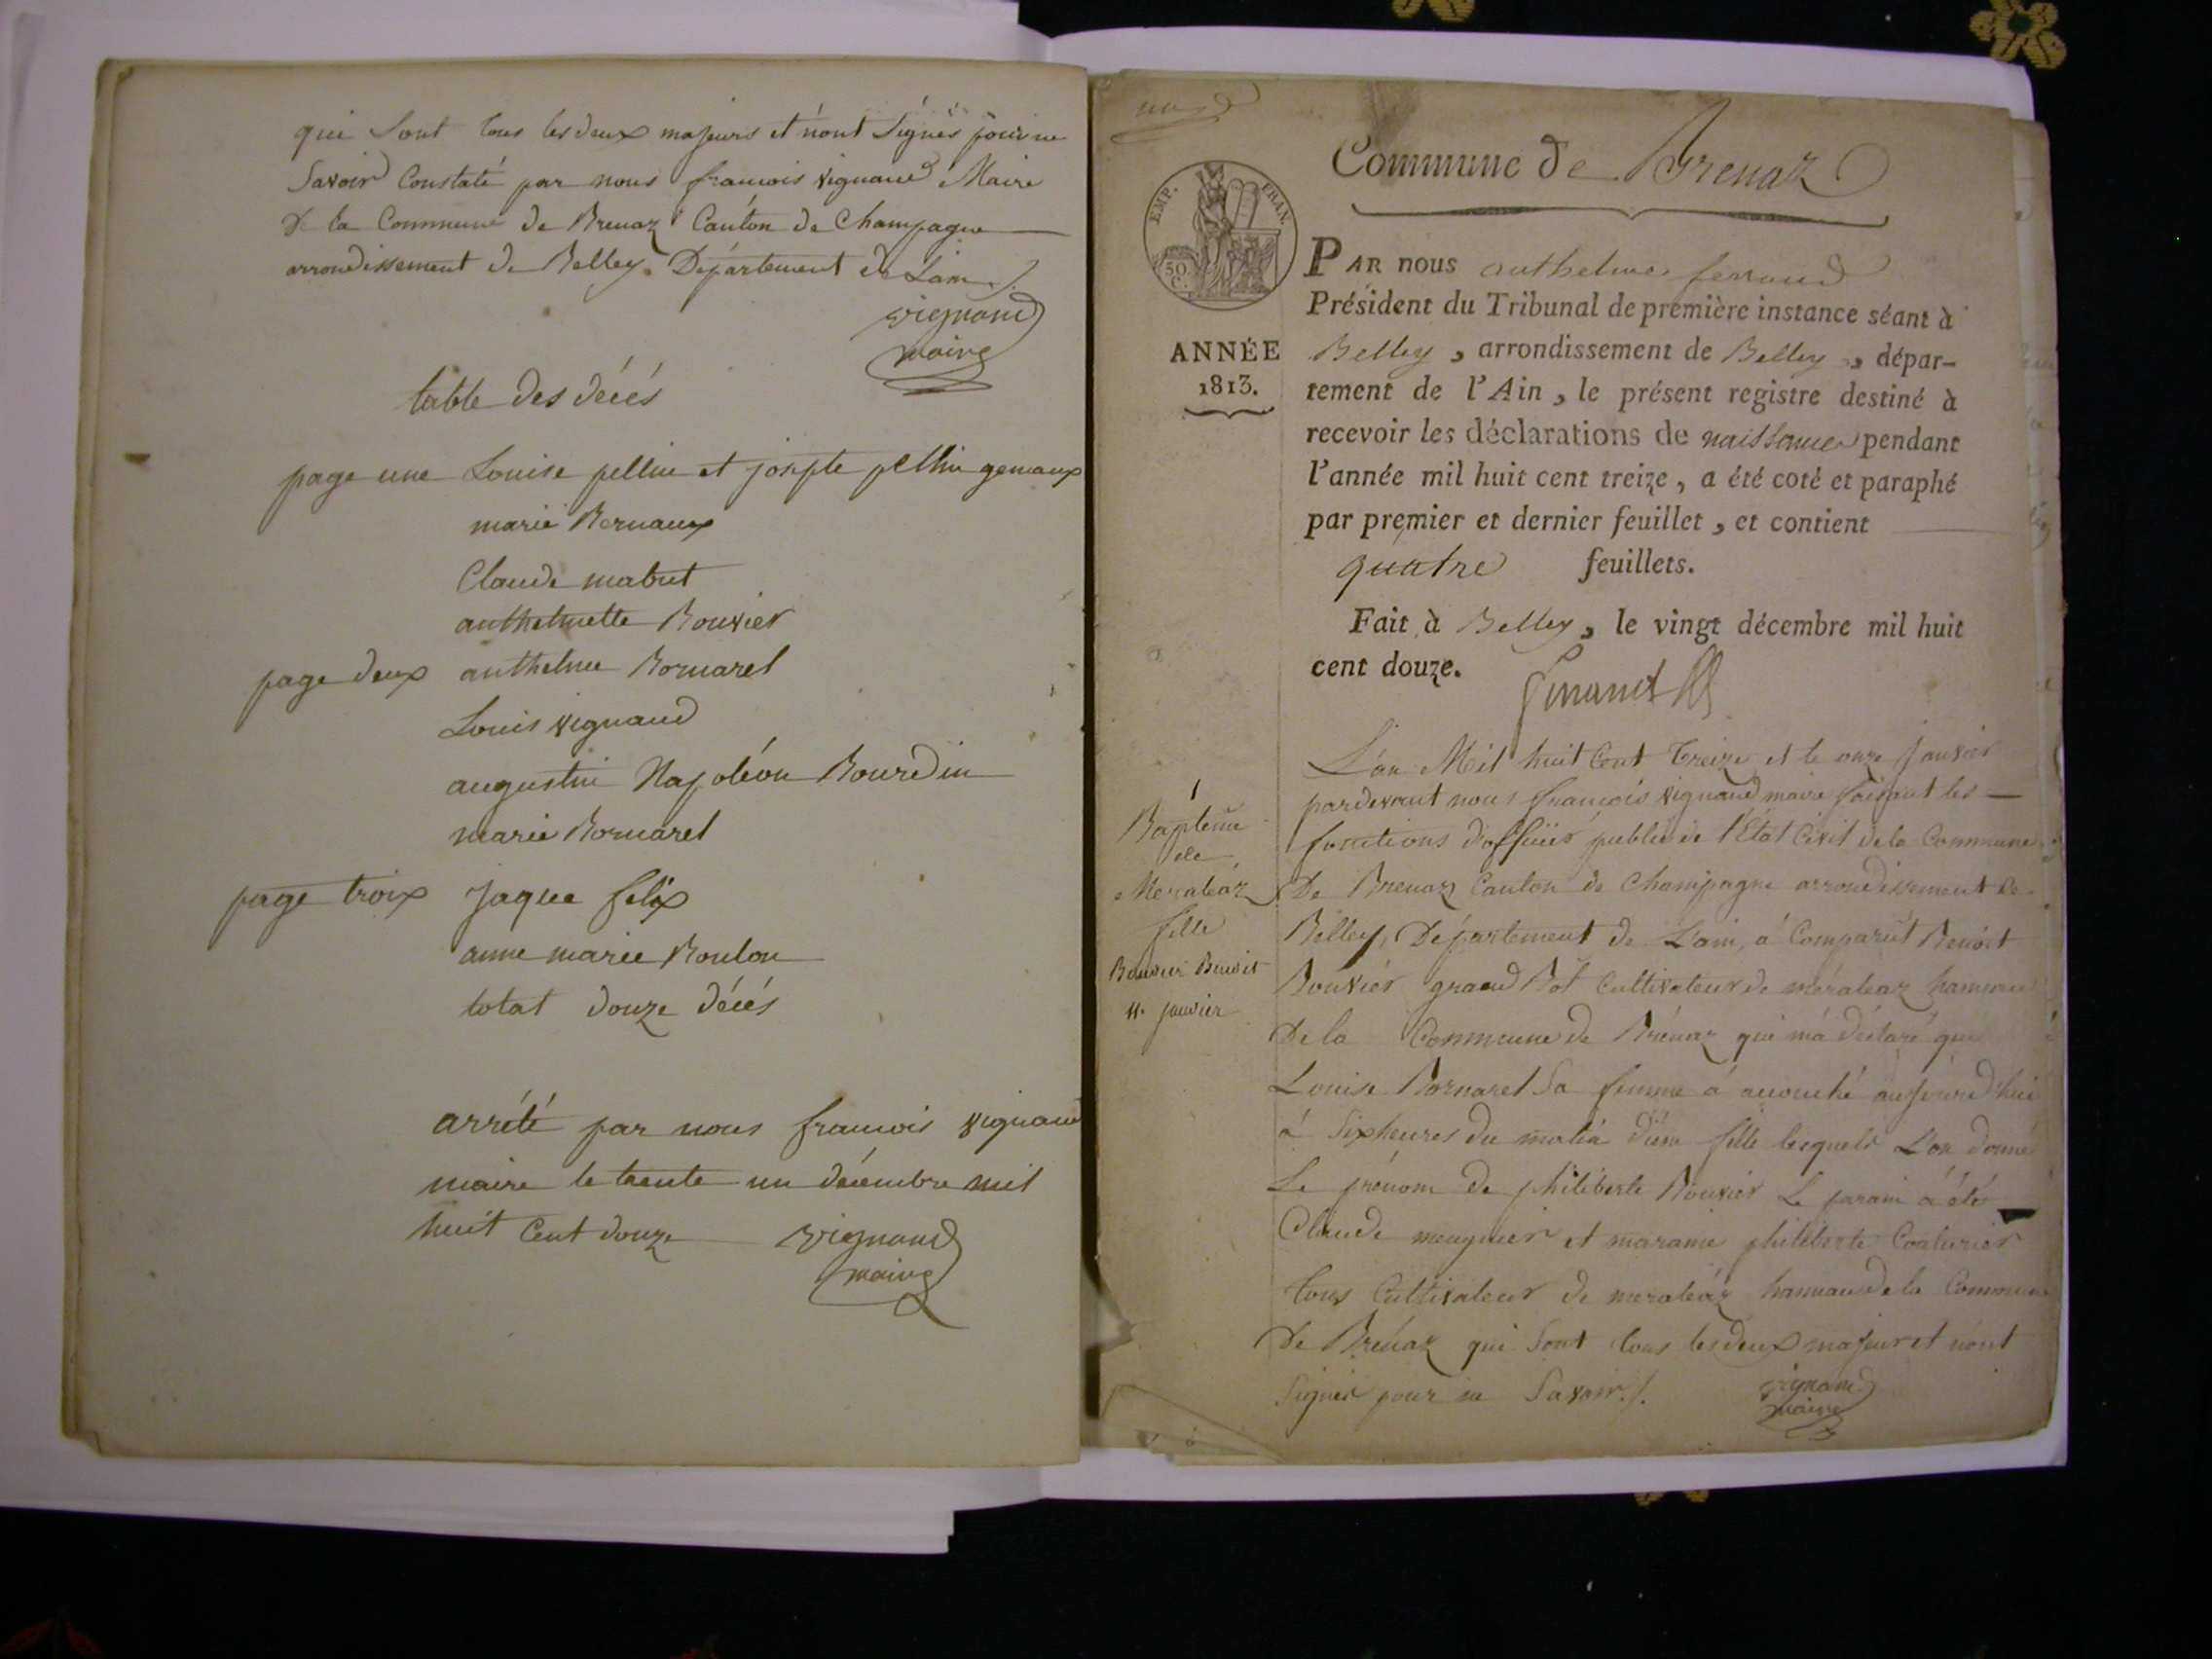 qui sont tous les deux majeurs et n'ont signés pour ne
savoir Constaté par nous francois vignand Maire
De la Commune de Brenaz Canton de Champagne
arrondissement de Belley. Département de Lain ./.
vignand
maire
table des décés
page une Louise pellin et josepte pellin gemaux
marie Bernaux
Claude mabut
anthelmette Bouvier
page deux anthelme Bornarel
Louis vignand
augustin Napoléon Bourdin
marie Bornarel
page troix Jaque felix
anne marie Boulon
total douze décés
arrété par nous francois vignand
maire le trente un décembre mil
huit Cent douze vignand
maire
Commune de Brenaz
EMP. FRAN.
50 C.
ANNÉE
1813.
PAR nous anthelme ferrand
Président du Tribunal de première instance séant à
Belley, arrondissement de Belley, dépar-
tement de l'Ain, le présent registre destiné à
recevoir les déclarations de naissance pendant
l'année mil huit cent treize, a été coté et paraphé
par premier et dernier feuillet, et contient
quatre feuillets.
Fait à Belley, le vingt décembre mil huit
cent douze.
1
Baptême
de
Meraleaz
fille
Bouvier Benoit
11. janvier
L'an Mil huit Cent treize et le onze janvier
pardevant nous francois vignand maire faisant les
fonctions d'officier public de l'Etat Civil de la Commune
De Brenaz Canton de Champagne arrondissement de
Belley, Département de L'ain, á Comparut Benoit
Bouvier grand Cultivateur de méraleaz hameau
De la Commune de Brénaz qui má déclaré que
Louise Bornarel sa femme á accouché aujourd'hui
á six heures du matin d'une fille lesquels L'on donné
Le prénom de philiberte Bouvier Le parain á été
Claude meugnier et maraine philiberte Couturier
tous Cultivateur de meraléaz hameau de la Commune
De Brénaz qui sont tous les deux majeur et n'ont
signés pour ne savoir ./.
vignand
maire